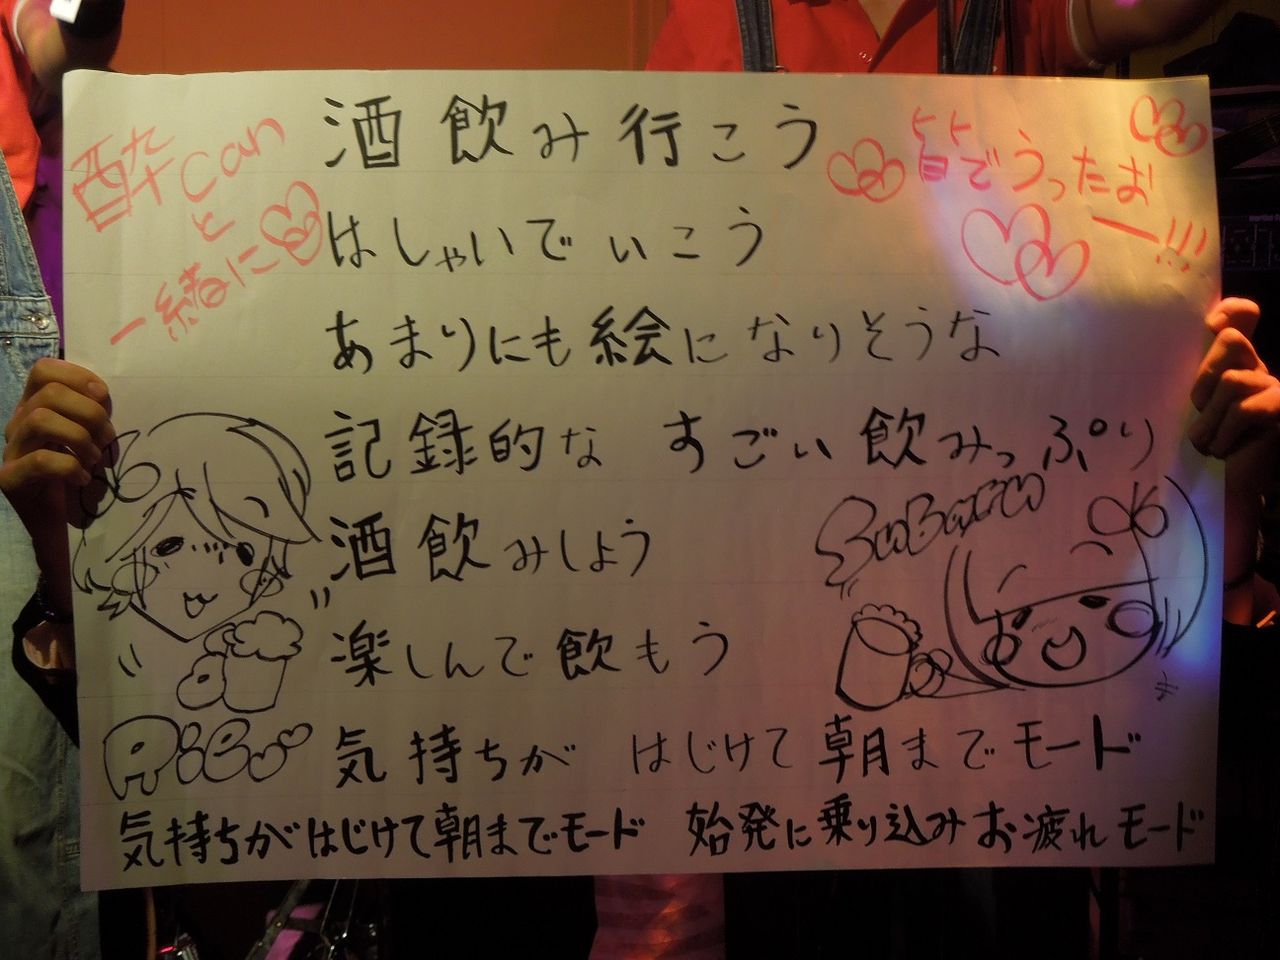 酔canと
一緒に
酒飲み行こう
皆でうったお
ー!!!
はしゃいでいこう
あまりにも絵になりそうな
記録的な すごい飲みっぷり
酒飲みしよう
SuBaru
楽しんで飲もう
Rieuv
気持ちが はじけて朝までモード
気持ちがはじけて朝までモード 始発に乗り込みお疲れモード